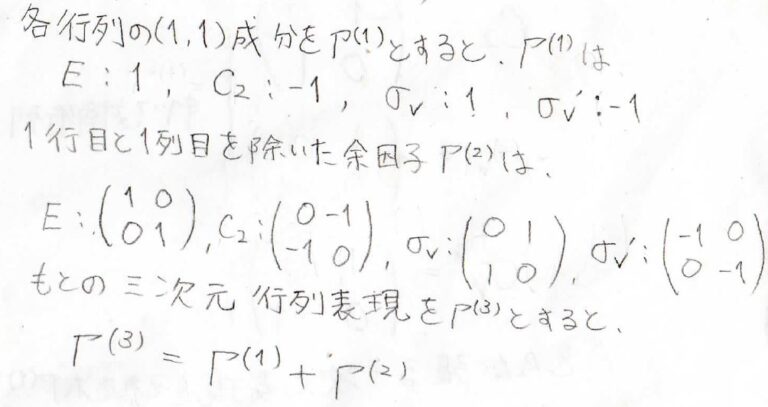 各行列の(1,1)成分をΓ(1)とすると、Γ(1)は
E : 1 , C2 : -1 , σv : 1 , σv′ : -1
1行目と1列目を除いた余因子Γ(2)は、
E : (1 0 0 1), C2 : (0 -1 -1 0), σv : (0 1 1 0), σv′ : (-1 0 0 -1)
もとの三次元行列表現をΓ(3)とすると、
Γ(3) = Γ(1) + Γ(2)